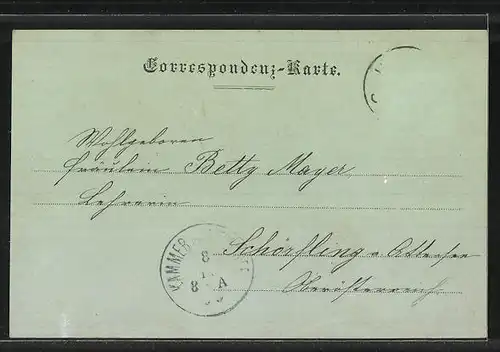 Correspondenz-Karte.
Wohlgeboren
Fräulein Betty Mayer
Lehrerin
Schörfling a Attersee
Oberösterreich
KAMMER
8
8 A